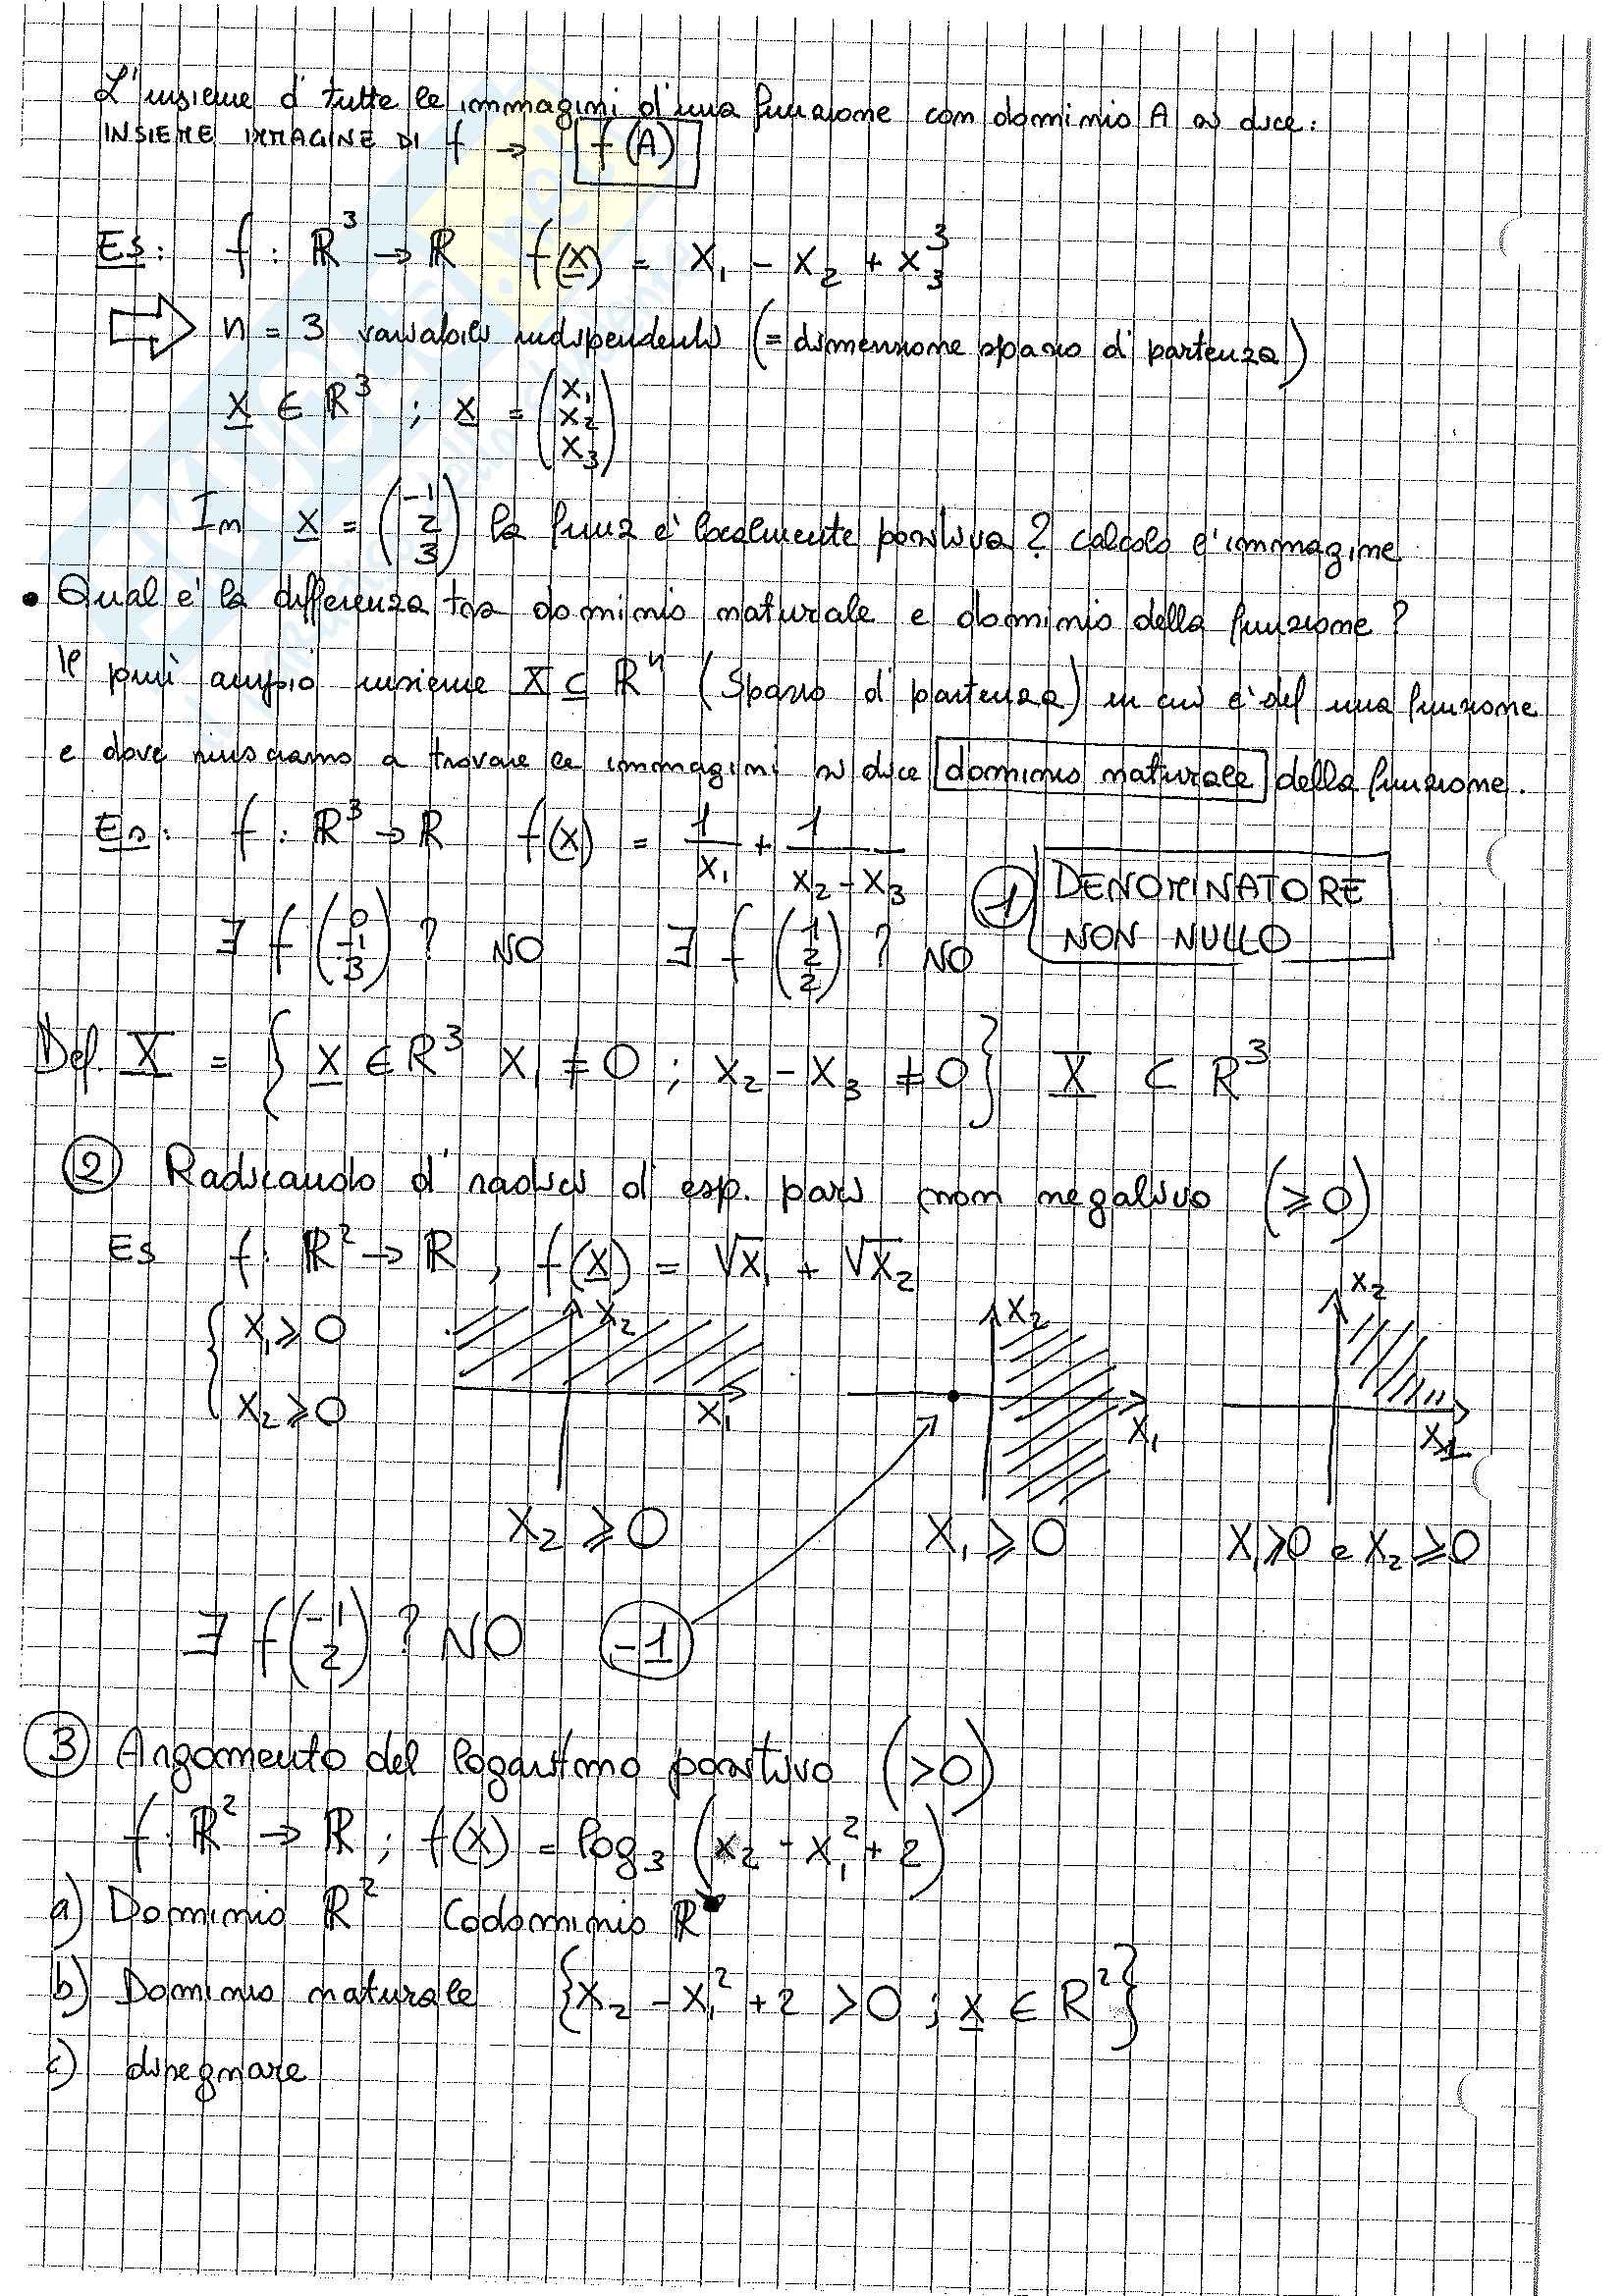 L'insieme d' tutte le immagini d'una funzione con dominio A si dice:
INSIEME IMMAGINE DI f → f(A)
Es: f : ℝ³ → ℝ f(x) = x₁ - x₂ + x₃³
⇒ n = 3 variabili indipendenti (= dimensione spazio d' partenza)
x ∈ ℝ³ ; x = (x₁ x₂ x₃)
In x = (-1 2 3) la funz è localmente positiva? calcolo l'immagine
• Qual è la differenza tra dominio naturale e dominio della funzione?
Il più ampio insieme X ⊆ ℝⁿ (Spazio d' partenza) in cui è def una funzione
e dove riusciamo a trovare le immagini si dice dominio naturale della funzione.
Es: f : ℝ³ → ℝ f(x) = 1/x₁ + 1/(x₂ - x₃)
① DENOMINATORE NON NULLO
∃ f(0 -1 3) ? NO ∃ f(1 2 2) ? NO
Def. X = { x ∈ ℝ³ x₁ ≠ 0 ; x₂ - x₃ ≠ 0 } X ⊂ ℝ³
② Radicando d' radici d' esp. pari non negativo (≥ 0)
Es f : ℝ² → ℝ , f(x) = √x₁ + √x₂
{ x₁ ≥ 0
x₂ ≥ 0
x₂ x₁
x₂ x₁
x₂ x₁
x₂ ≥ 0 x₁ ≥ 0 x₁ ≥ 0 e x₂ ≥ 0
∃ f(-1 2) ? NO -1
③ Argomento del logaritmo positivo (> 0)
f : ℝ² → ℝ ; f(x) = log₃ (x₂ - x₁² + 2)
a) Dominio ℝ² Codominio ℝ
b) Dominio naturale {x₂ - x₁² + 2 > 0 ; x ∈ ℝ²}
c) disegnare